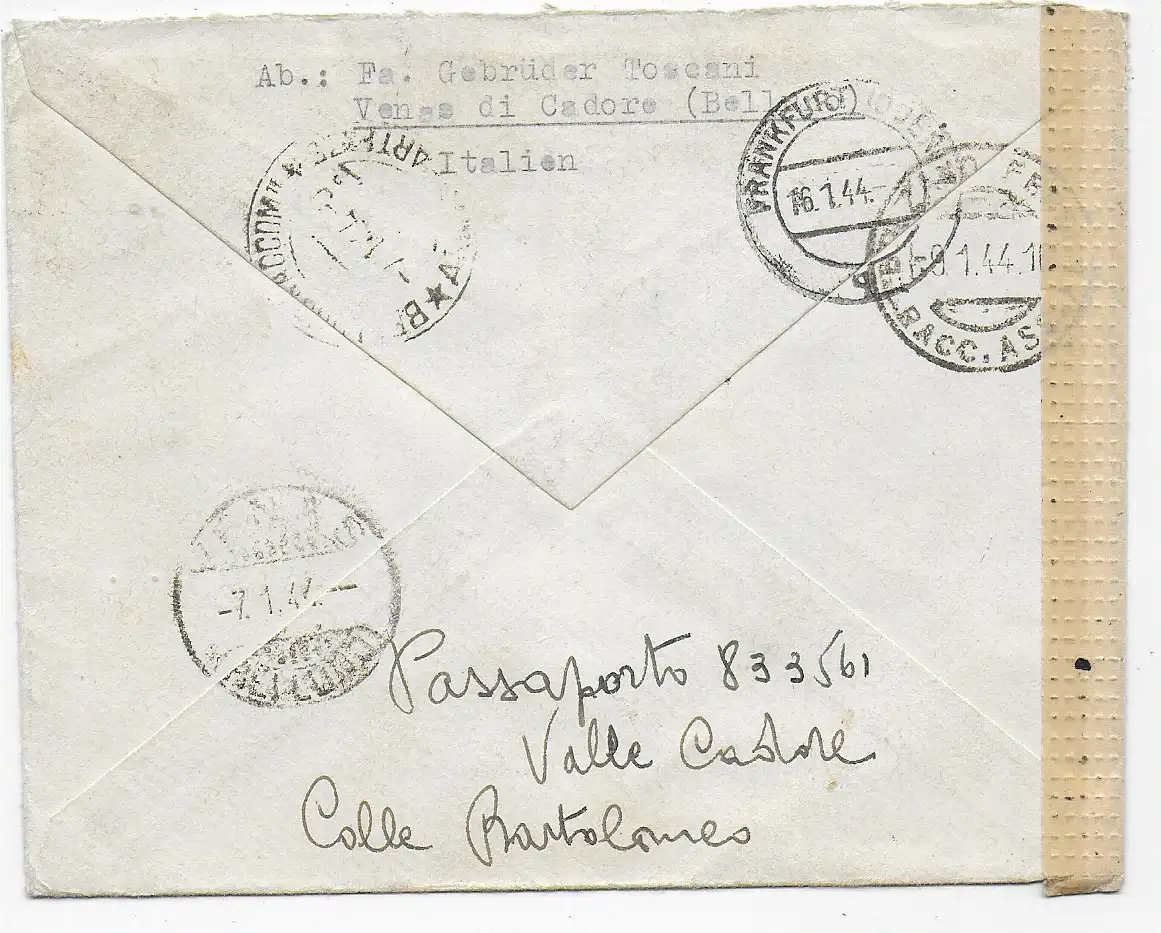 Ab.: Fa. Gebrüder Toscani
Venas di Cadore (Bell o)
Italien
FRANKFURT (ODER)
16.1.44.-
-8.1.44.1
RACC. ASS
-7.1.44.-
BELLUNO
Passaporto 833561
Valle Cadore
Colle Bartolomeo